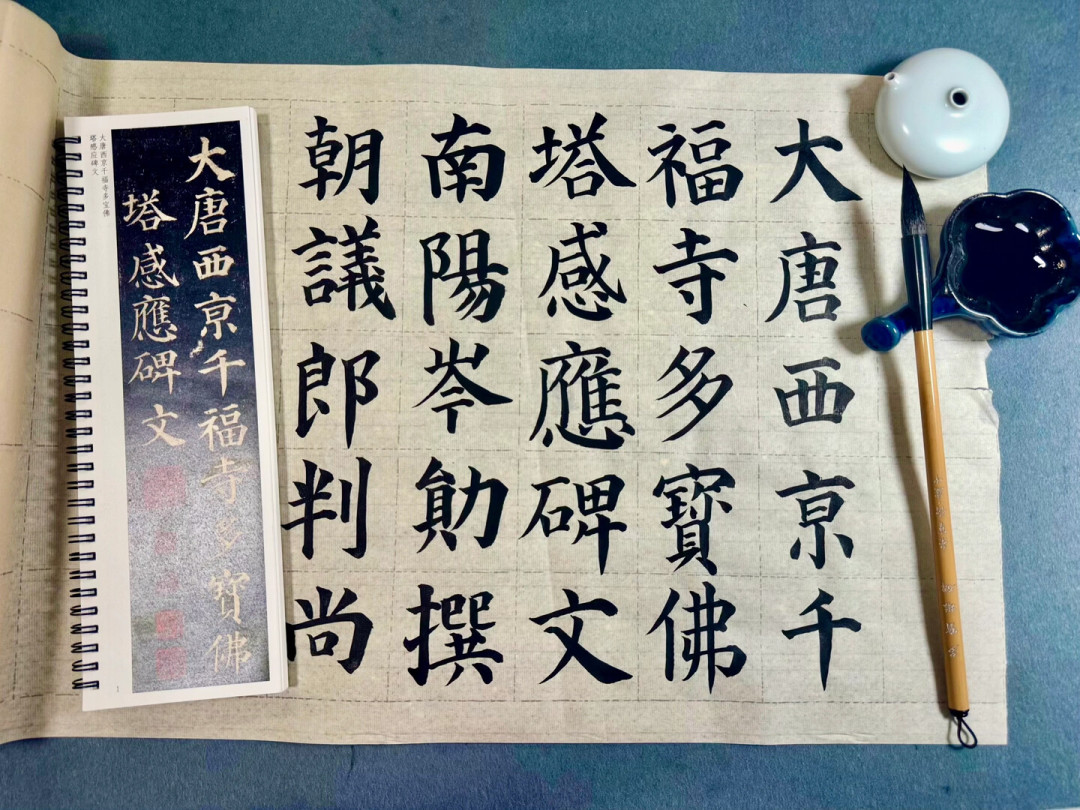 大唐西亰千
福寺多寶佛
塔感應碑文
南陽岑勛撰
朝議郎判尚
大唐西亰千福寺多寶佛
塔感應碑文
大唐西京千福寺多宝佛
塔感应碑文
1